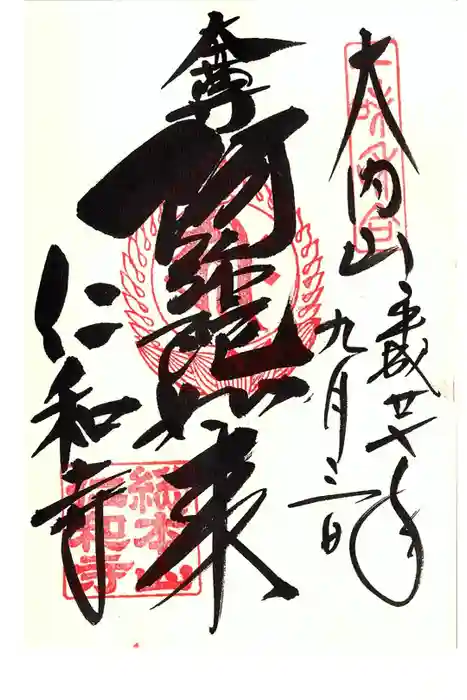 大内山
平成廿七年
九月三日
阿弥陀如来
仁和寺
総本山
仁和寺